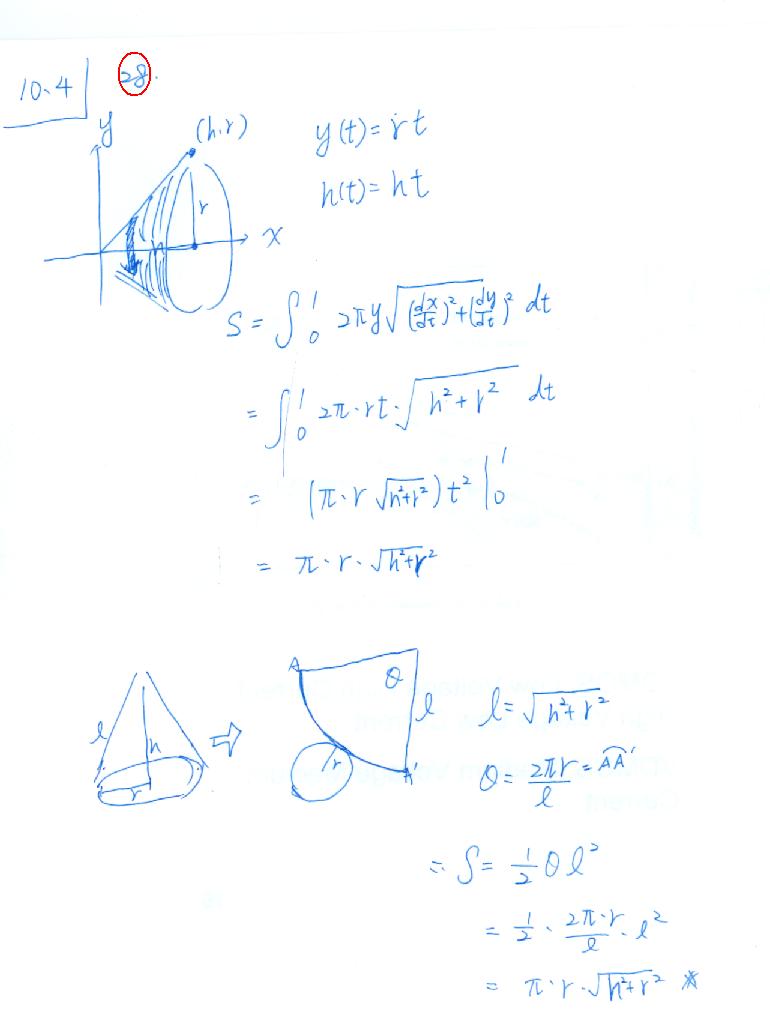 10.4 28.
y
(h, r)
r
h
x
y(t) = rt
h(t) = ht
S = ∫₀¹ 2πy √((dx/dt)² + (dy/dt)²) dt
= ∫₀¹ 2π·rt·√(h²+r²) dt
= (π·r √(h²+r²)) t² |₀¹
= π·r·√(h²+r²)
l
h
r
⇒
A
θ
l
r
A'
l = √(h²+r²)
θ = 2πr/l = AA'
∴ S = 1/2 θ l²
= 1/2 · 2π·r/l · l²
= π·r·√(h²+r²) *